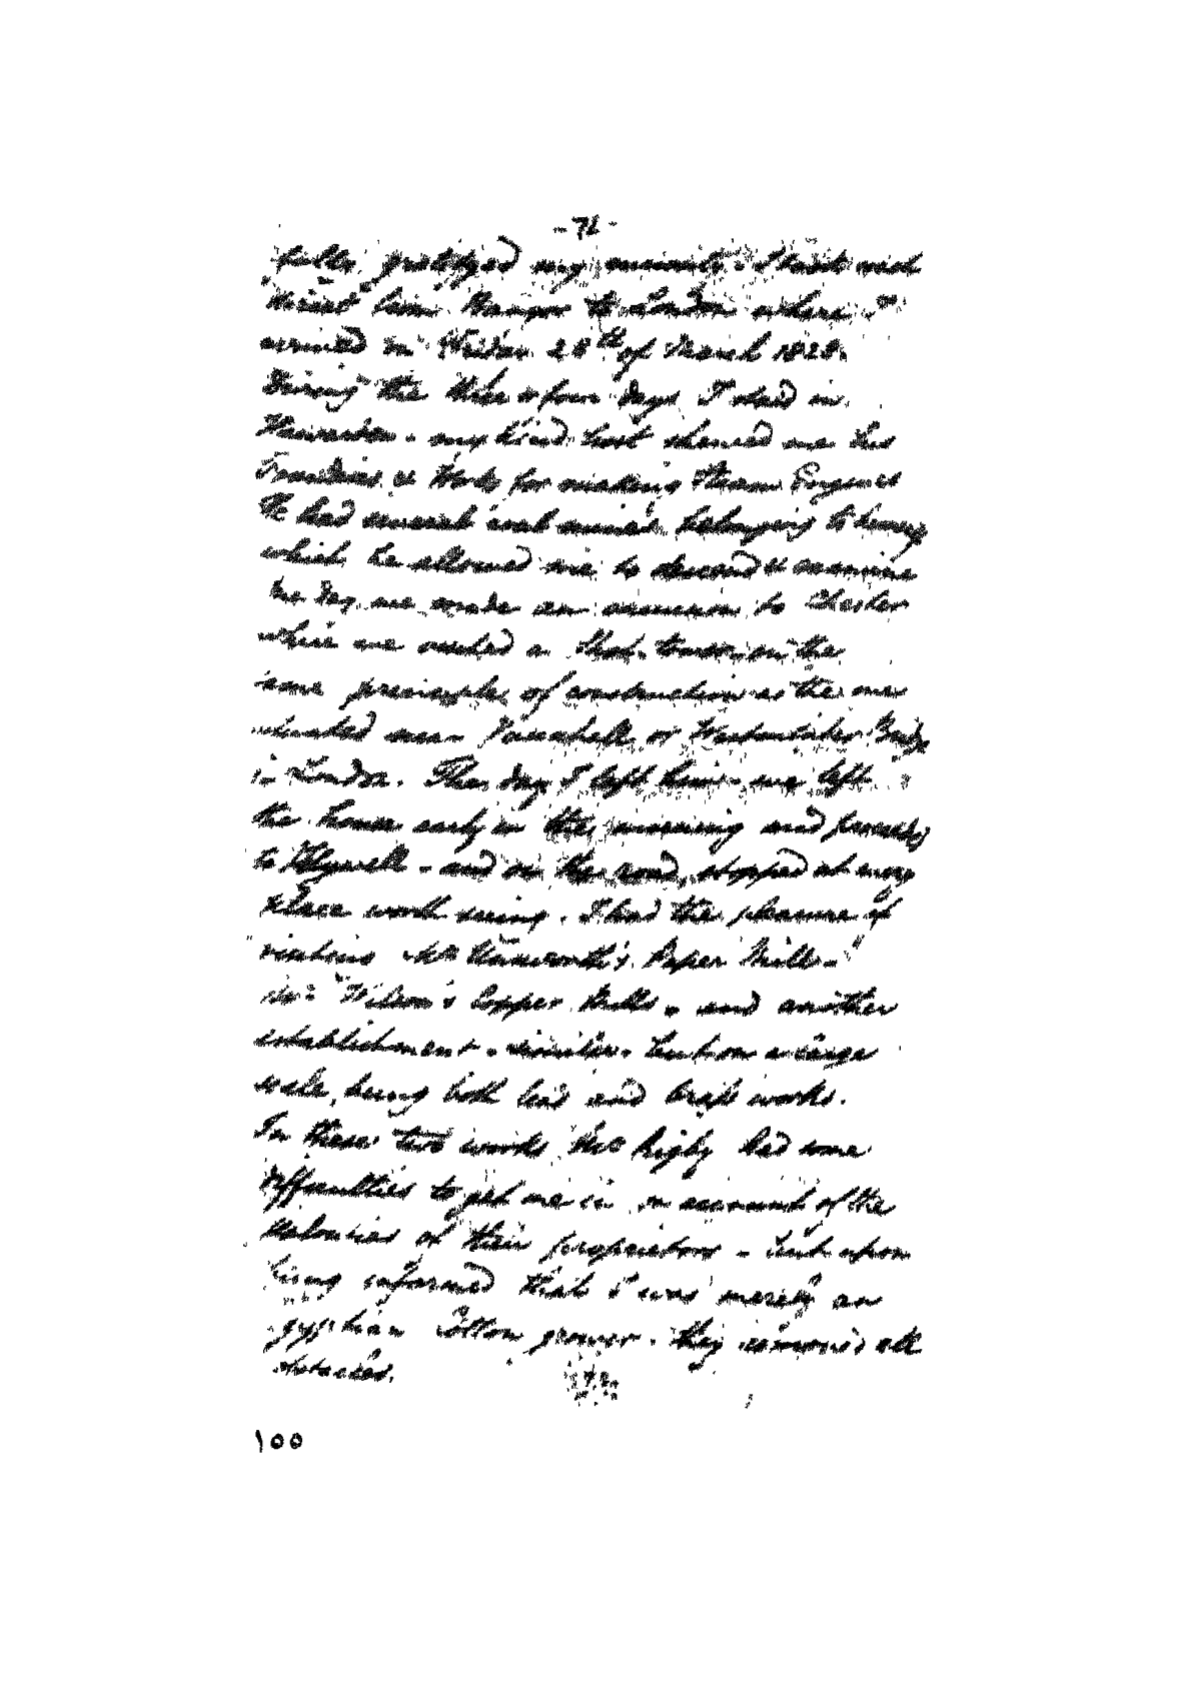 - 72 -
fully gratified my curiosity. I took coach
direct from Bangor to London where I
arrived on Friday 28th of March 1828.
During the three or four days I staid in
Hawarden - my kind host shewed me his
Foundries & Works for making Steam Engines
He had several coal mines belonging to him
which he allowed me to descend & examine
One day we made an excursion to Chester
where we visited a Shot-tower on the
same principle of construction as the one
situated near Vauxhall or Westminster Bridge
in London. The day I left him - we left
the house early in the morning and proceeded
to Holywell - and on the road, stopped at every
place worth seeing. I had the pleasure of
visiting Mr Paper Mill -
Mr Wilson's Copper Mills - and another
establishment - similar - but on a large
scale, being both lead and brass works.
In these two works Mr Rigby had some
difficulties to get me in on account of the
jealousies of their proprietors - but upon
being informed that I was merely an
gyptian Cotton grower - they removed all
obstacles.
١٥٥